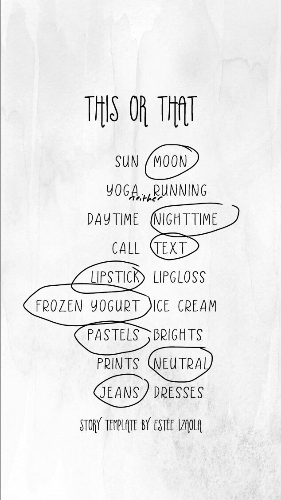 THIS OR THAT
SUN MOON
YOGA RUNNING
neither
DAYTIME NIGHTTIME
CALL TEXT
LIPSTICK LIPGLOSS
FROZEN YOGURT ICE CREAM
PASTELS BRIGHTS
PRINTS NEUTRAL
JEANS DRESSES
STORY TEMPLATE BY ESTÉE LZAOLA